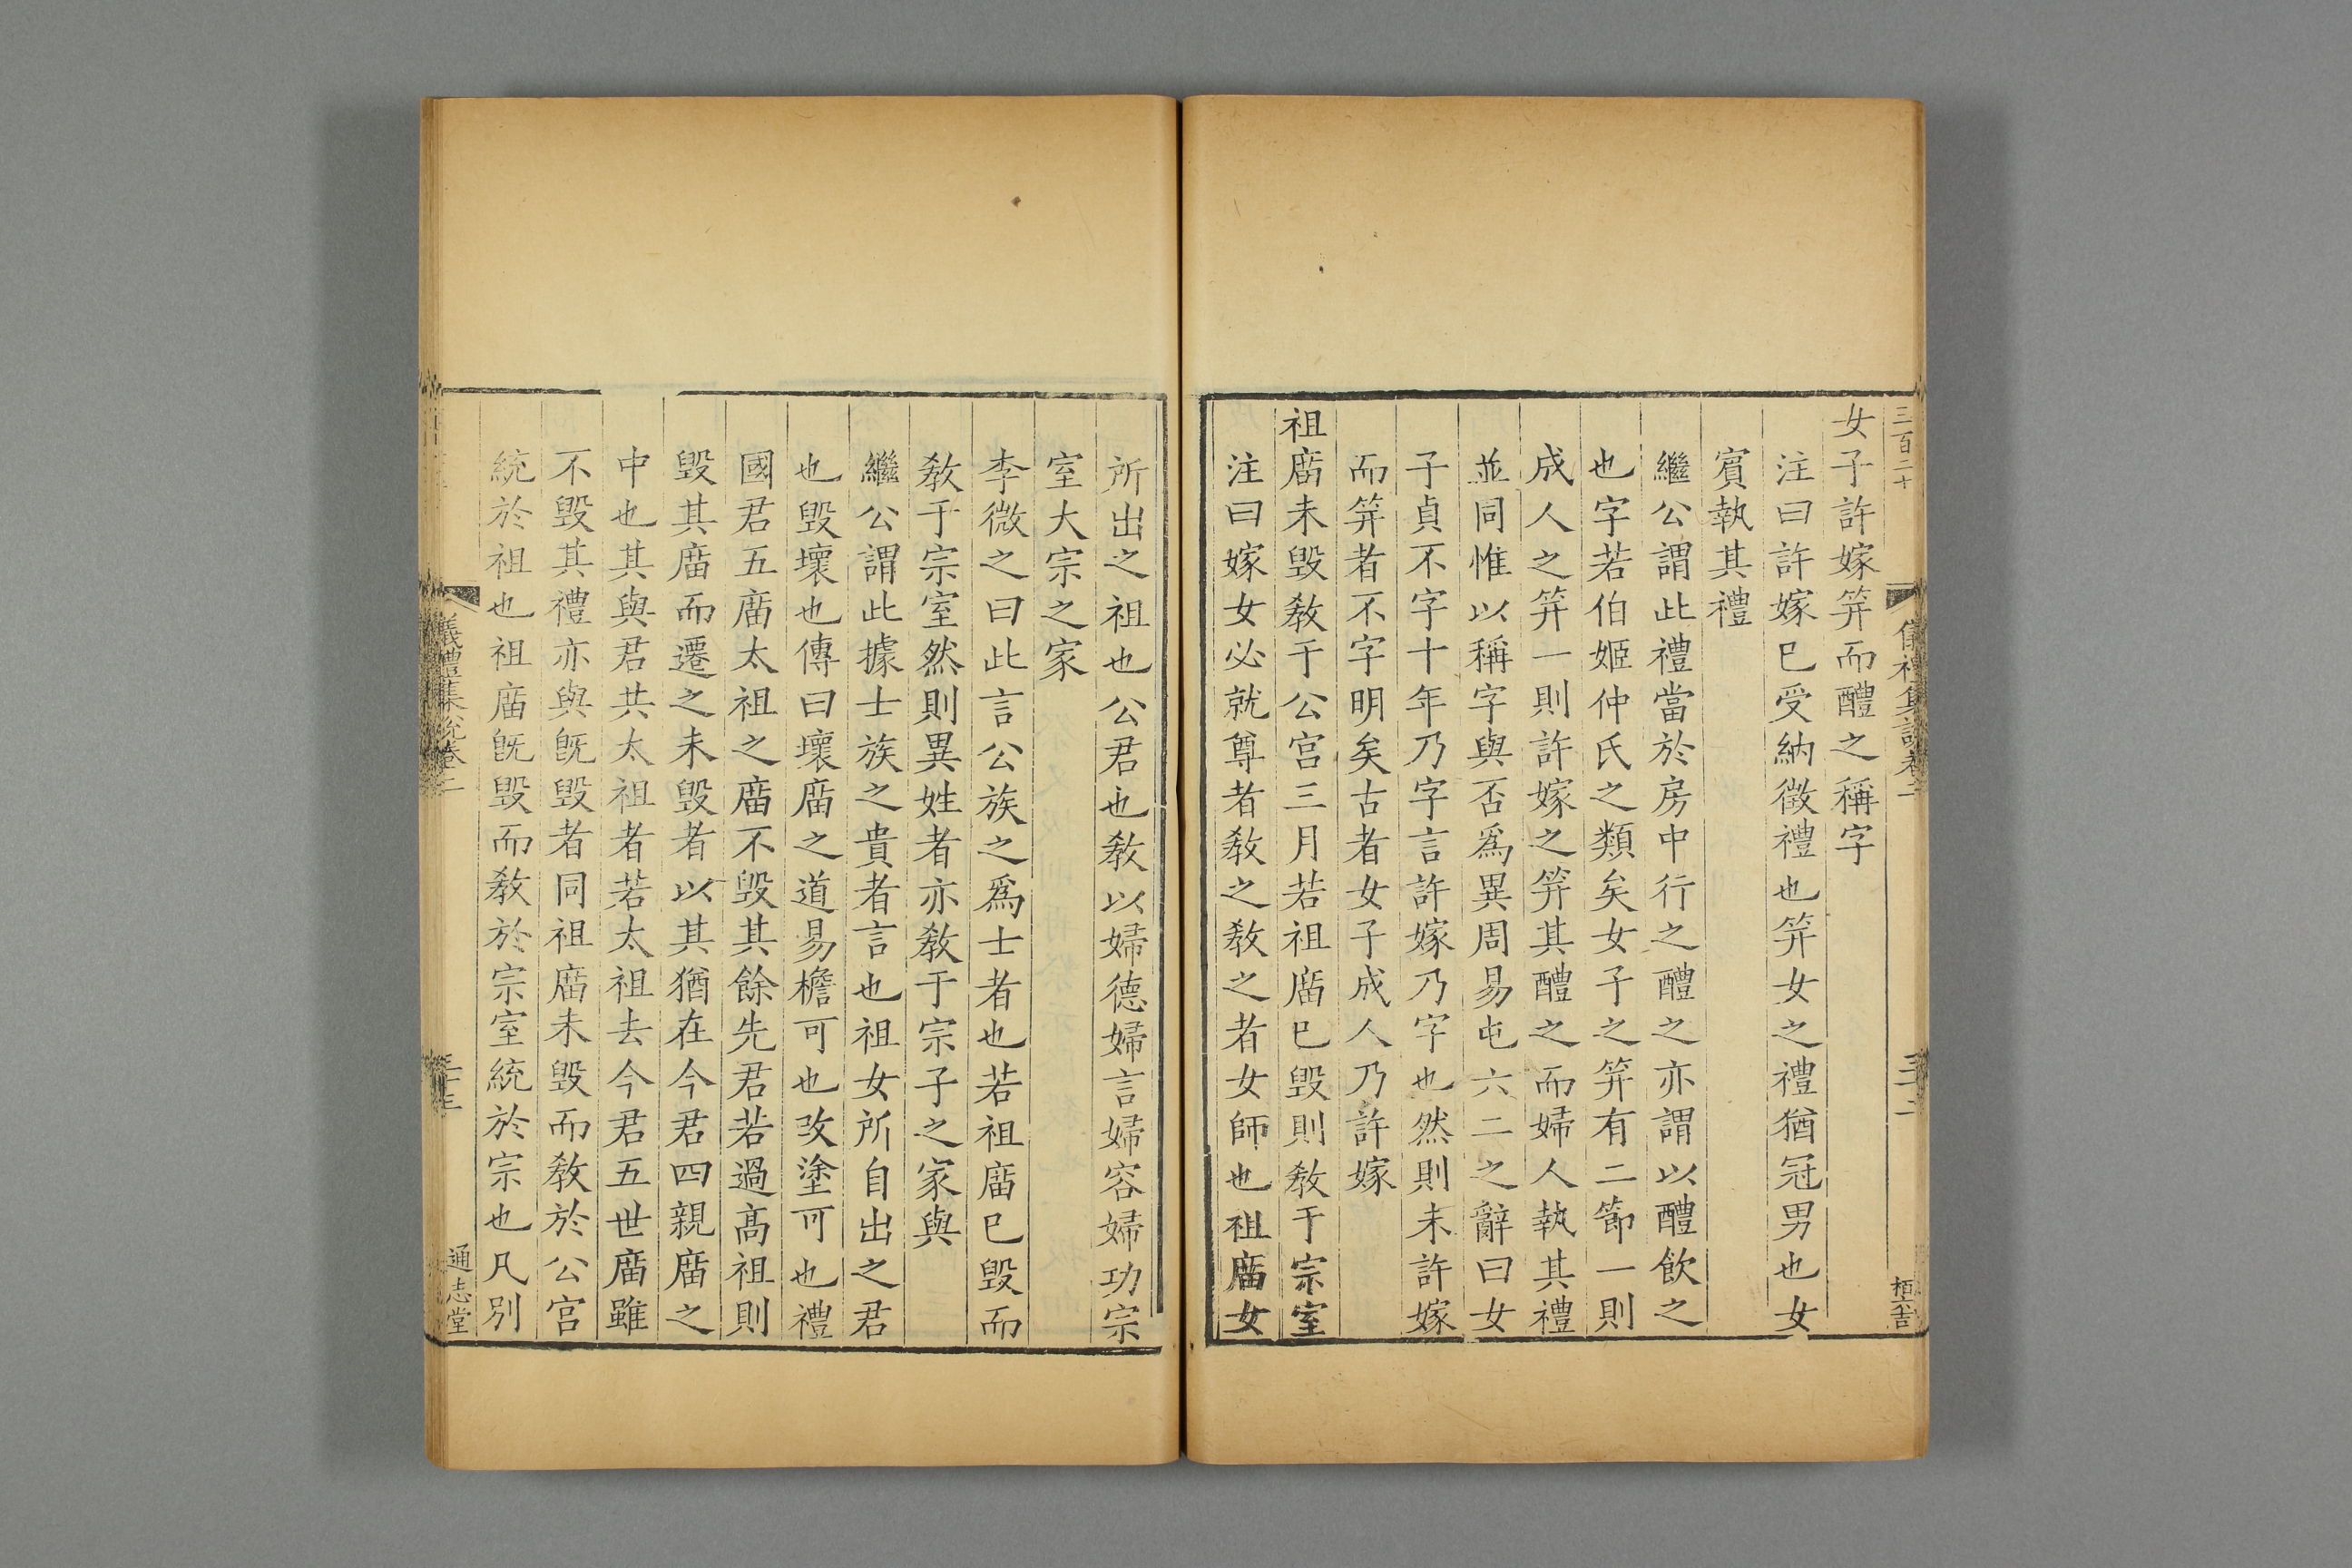 三百二十
儀禮集說卷二
女子許嫁笄而醴之稱字
注曰許嫁巳受納徵禮也笄女之禮猶冠男也女
賓執其禮
繼公謂此禮當於房中行之醴之亦謂以醴飲之
也字若伯姬仲氏之類矣女子之笄有二節一則
成人之笄一則許嫁之笄其醴之而婦人執其禮
並同惟以稱字與否爲異周易屯六二之辭曰女
子貞不字十年乃字言許嫁乃字也然則未許嫁
而笄者不字明矣古者女子成人乃許嫁
祖廟未毀敎于公宮三月若祖廟巳毀則敎于宗室
注曰嫁女必就尊者敎之敎之者女師也祖廟女
所出之祖也公君也敎以婦德婦言婦容婦功宗
室大宗之家
李微之曰此言公族之爲士者也若祖廟巳毀而
敎于宗室然則異姓者亦敎于宗子之家與
繼公謂此據士族之貴者言也祖女所自出之君
也毀壞也傳曰壞廟之道易檐可也改塗可也禮
國君五廟太祖之廟不毀其餘先君若過高祖則
毀其廟而遷之未毀者以其猶在今君四親廟之
中也其與君共太祖者若太祖去今君五世廟雖
不毀其禮亦與旣毀者同祖廟未毀而敎於公宮
統於祖也祖廟旣毀而敎於宗室統於宗也凡別
儀禮集說卷二
通志堂